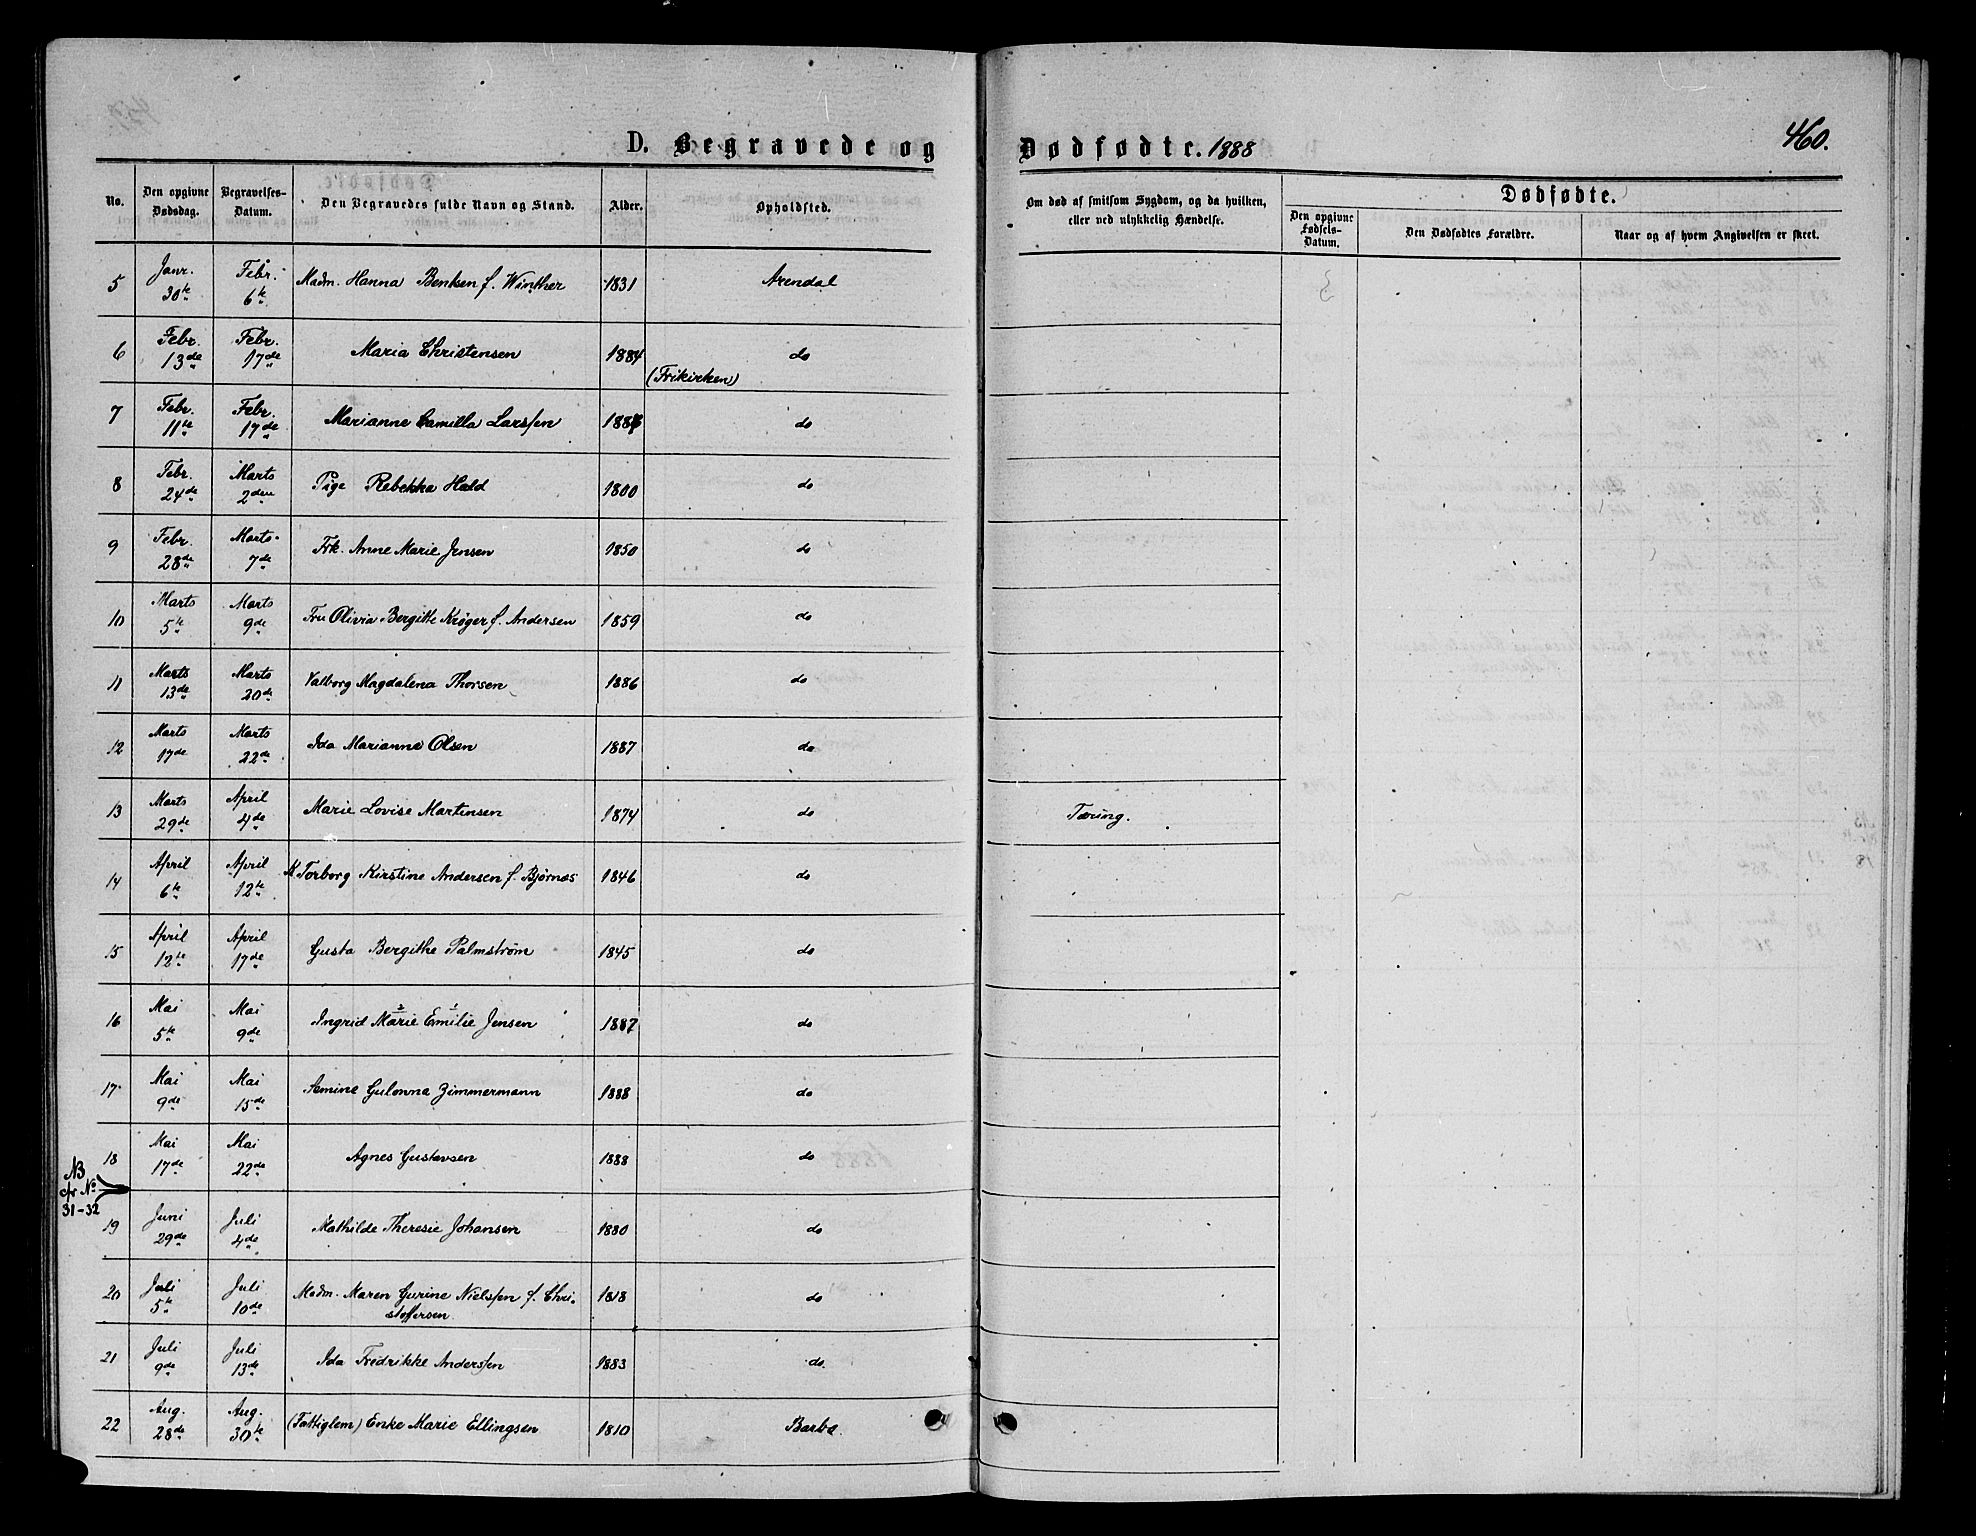 D. Begravede og Dødfødte. 1888 460.
No. Den opgivne Dødsdag. Begravelses-Datum. Den Begravedes fulde Navn og Stand. Alder. Opholdsted. Om død af smitsom Sygdom, og da hvilken, eller ved ulykkelig Hændelse. Dødfødte.
Den opgivne Fødsels-Datum. Den Dødfødtes Forældre. Naar og af hvem Angivelsen er skeet.
5 Janr. 30te Febr. 6te Madm. Hanna Bentsen f. Winther 1831 Arendal
6 Febr. 13de Febr. 17de Maria Christensen 1884 do
(Frikirken)
7 Febr. 11te Febr. 17de Marianne Camilla Larssen 1887 do
8 Febr. 24de Marts 2den Pige Rebekka Hald 1800 do
9 Febr. 28de Marts 7de Frk. Anne Marie Jensen 1850 do
10 Marts 5te Marts 9de Fru Olivia Bergitte Krøger f. Andersen 1859 do
11 Marts 13de Marts 20de Valborg Magdalena Thorsen 1886 do
12 Marts 17de Marts 22de Ida Marianne Olsen 1887 do
13 Marts 29de April 4de Marie Lovise Martinsen 1874 do Tæring.
14 April 6te April 12te K Torborg Kirstine Andersen f. Bjørnæs 1846 do
15 April 12te April 17de Gusta Bergithe Palmstrøm 1845 do
16 Mai 5te Mai 9de Ingrid Marie 2 Emilie 1 Jensen 1887 do
17 Mai 9de Mai 15de Semine Gulovna Zimmermann 1888 do
18 Mai 17de Mai 22de Agnes Gustavsen 1888 do
NB
cfr No
31-32
19 Juni 29de Juli 4de Mathilde Theresie Johansen 1880 do
20 Juli 5te Juli 10de Madm. Maren Gurine Nielssen f. Chri-
stoffersen 1818 do
21 Juli 9de Juli 13de Ida Fredrikke Anderssen 1883 do.
22 Aug. 28de Aug. 30te (Fattiglem) Enke Marie Ellingsen 1810 Barbo.